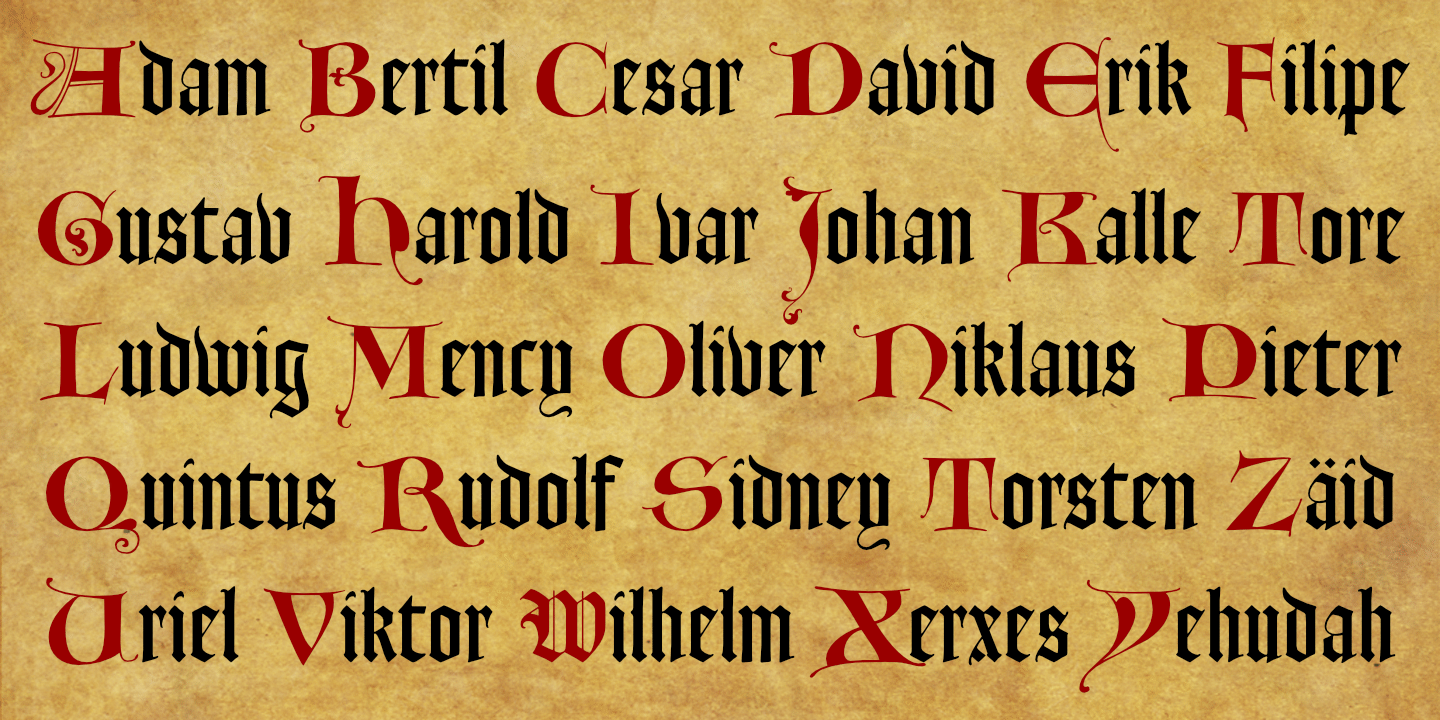 Adam Bertil Cesar David Erik Filipe
Gustav Harold Ivar Johan Kalle Tore
Ludwig Mency Oliver Niklaus Pieter
Quintus Rudolf Sidney Torsten Zäid
Uriel Viktor Wilhelm Xerxes Yehudah